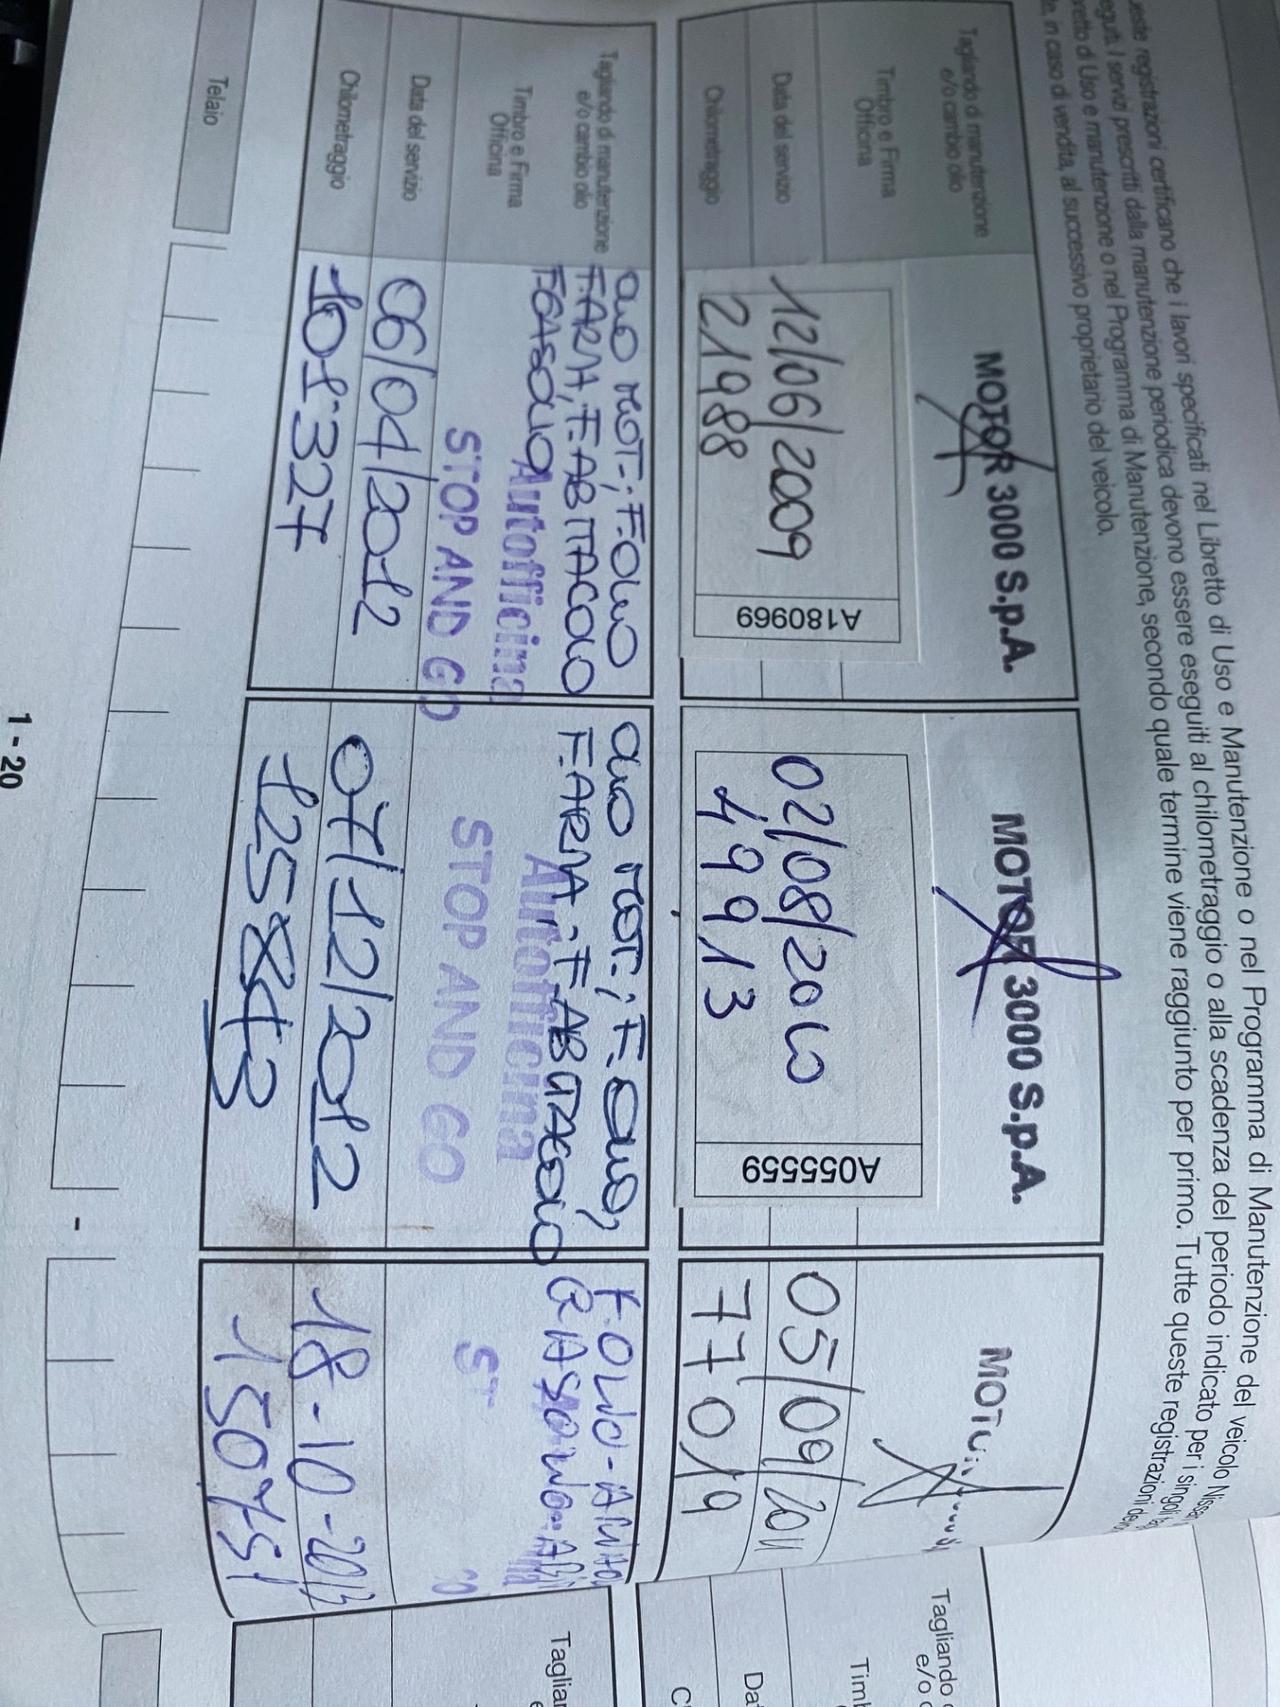 este registrazioni certificano che i lavori specificati nel Libretto di Uso e Manutenzione o nel Programma di Manutenzione del veicolo Nissan
eguiti. I servizi prescritti dalla manutenzione periodica devono essere eseguiti al chilometraggio o alla scadenza del periodo indicato per i singoli
retto di Uso e manutenzione o nel Programma di Manutenzione, secondo quale termine viene raggiunto per primo. Tutte queste registrazioni
te, in caso di vendita, al successivo proprietario del veicolo.
Tagliando di manutenzione
e/o cambio olio
Timbro e Firma
Officina
Data del servizio
Chilometraggio
MOTOR 3000 S.p.A.
A180969
12/06/2009
21988
MOTOR 3000 S.p.A.
A055559
02/08/2010
49913
05/09/2011
77019
Tagliando di manutenzione
e/o cambio olio
Timbro e Firma
Officina
Data del servizio
Chilometraggio
OLIO MOT.; F.OLIO
F.ARIA, F.ABITACOLO
F.GASOLIO
Autofficina
STOP AND GO
06/04/2012
108327
OLIO MOT.; F.OLIO,
F.ARIA; F.ABITACOLO
Autofficina
STOP AND GO
07/12/2012
125843
F.OLIO-
GASOLIO-
ST
18-10-2013
150751
Telaio
-
1 - 20
Tagliando
e/o